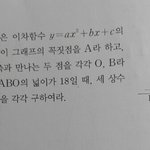 은 이차함수 y=ax²+bx+c의
이 그래프의 꼭짓점을 A라 하고,
과 만나는 두 점을 각각 O, B라
ABO의 넓이가 18일 때, 세 상수
을 각각 구하여라.